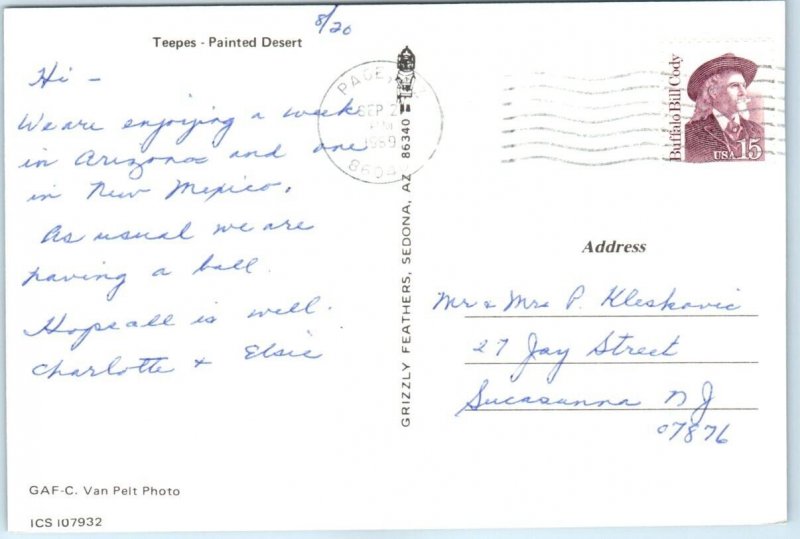 Teepes - Painted Desert
8/20
Hi -
We are enjoying a week
in Arizona and one
in New Mexico.
As usual we are
having a ball.
Hope all is well.
Charlotte & Elsie
GAF-C. Van Pelt Photo
ICS 107932
GRIZZLY FEATHERS, SEDONA, AZ 86340
PAGE,
SEP 2
PM
1989
Buffalo Bill Cody
USA 15
Address
Mr & Mrs P. Kleskovic
27 Jay Street
Succasunna NJ
07876